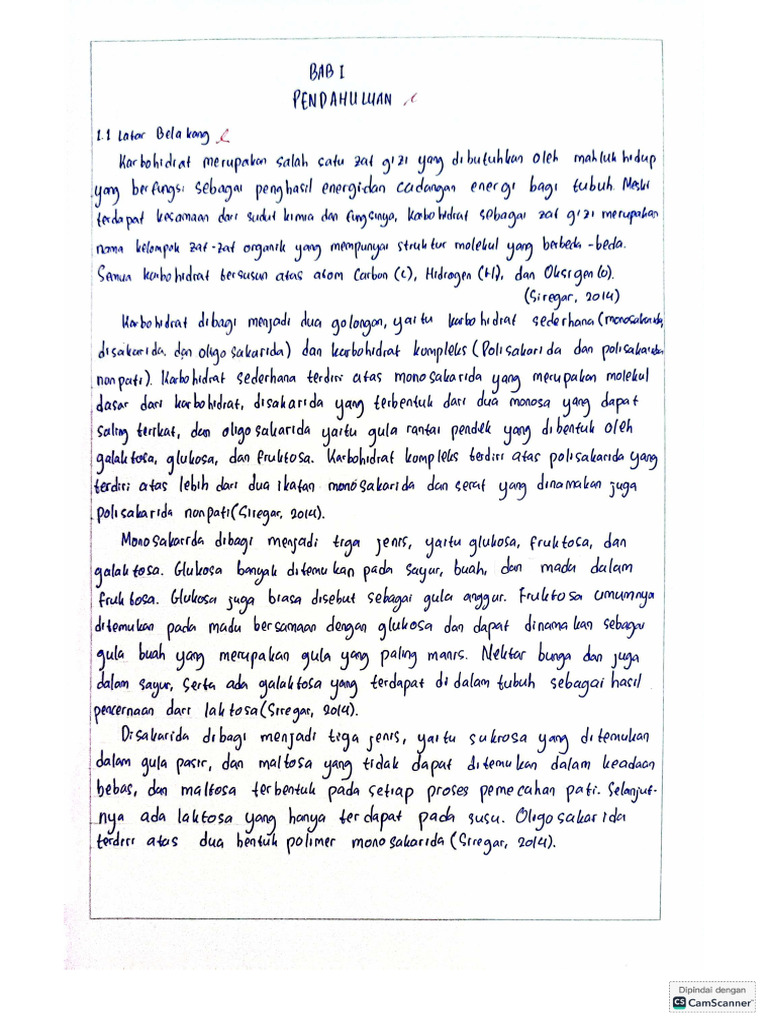 BAB I
PENDAHULUAN
1.1 Latar Belakang
Karbohidrat merupakan salah satu zat gizi yang dibutuhkan oleh mahluk hidup
yang berfungsi sebagai penghasil energi dan cadangan energi bagi tubuh. Meski
terdapat kesamaan dari sudut kimia dan fungsinya, karbohidrat sebagai zat gizi merupakan
nama kelompok zat-zat organik yang mempunyai struktur molekul yang berbeda-beda.
Semua karbohidrat tersusun atas atom Carbon (C), Hidrogen (H), dan Oksigen (O).
(Siregar, 2014)
Karbohidrat dibagi menjadi dua golongan, yaitu karbohidrat sederhana (monosakarida,
disakarida, dan oligosakarida) dan karbohidrat kompleks (Polisakarida dan polisakarida
nonpati). Karbohidrat sederhana terdiri atas monosakarida yang merupakan molekul
dasar dari karbohidrat, disakarida yang terbentuk dari dua monosa yang dapat
saling terikat, dan oligosakarida yaitu gula rantai pendek yang dibentuk oleh
galaktosa, glukosa, dan fruktosa. Karbohidrat kompleks terdiri atas polisakarida yang
terdiri atas lebih dari dua ikatan monosakarida dan serat yang dinamakan juga
polisakarida nonpati (Siregar, 2014).
Monosakarida dibagi menjadi tiga jenis, yaitu glukosa, fruktosa, dan
galaktosa. Glukosa banyak ditemukan pada sayur, buah, dan madu dalam
fruktosa. Glukosa juga biasa disebut sebagai gula anggur. Fruktosa umumnya
ditemukan pada madu bersamaan dengan glukosa dan dapat dinamakan sebagai
gula buah yang merupakan gula yang paling manis. Nektar bunga dan juga
dalam sayur, serta ada galaktosa yang terdapat di dalam tubuh sebagai hasil
pencernaan dari laktosa (Siregar, 2014).
Disakarida dibagi menjadi tiga jenis, yaitu sukrosa yang ditemukan
dalam gula pasir, dan maltosa yang tidak dapat ditemukan dalam keadaan
bebas, dan maltosa terbentuk pada setiap proses pemecahan pati. Selanjut-
nya ada laktosa yang hanya terdapat pada susu. Oligosakarida
terdiri atas dua bentuk polimer monosakarida (Siregar, 2014).
Dipindai dengan
CS CamScanner